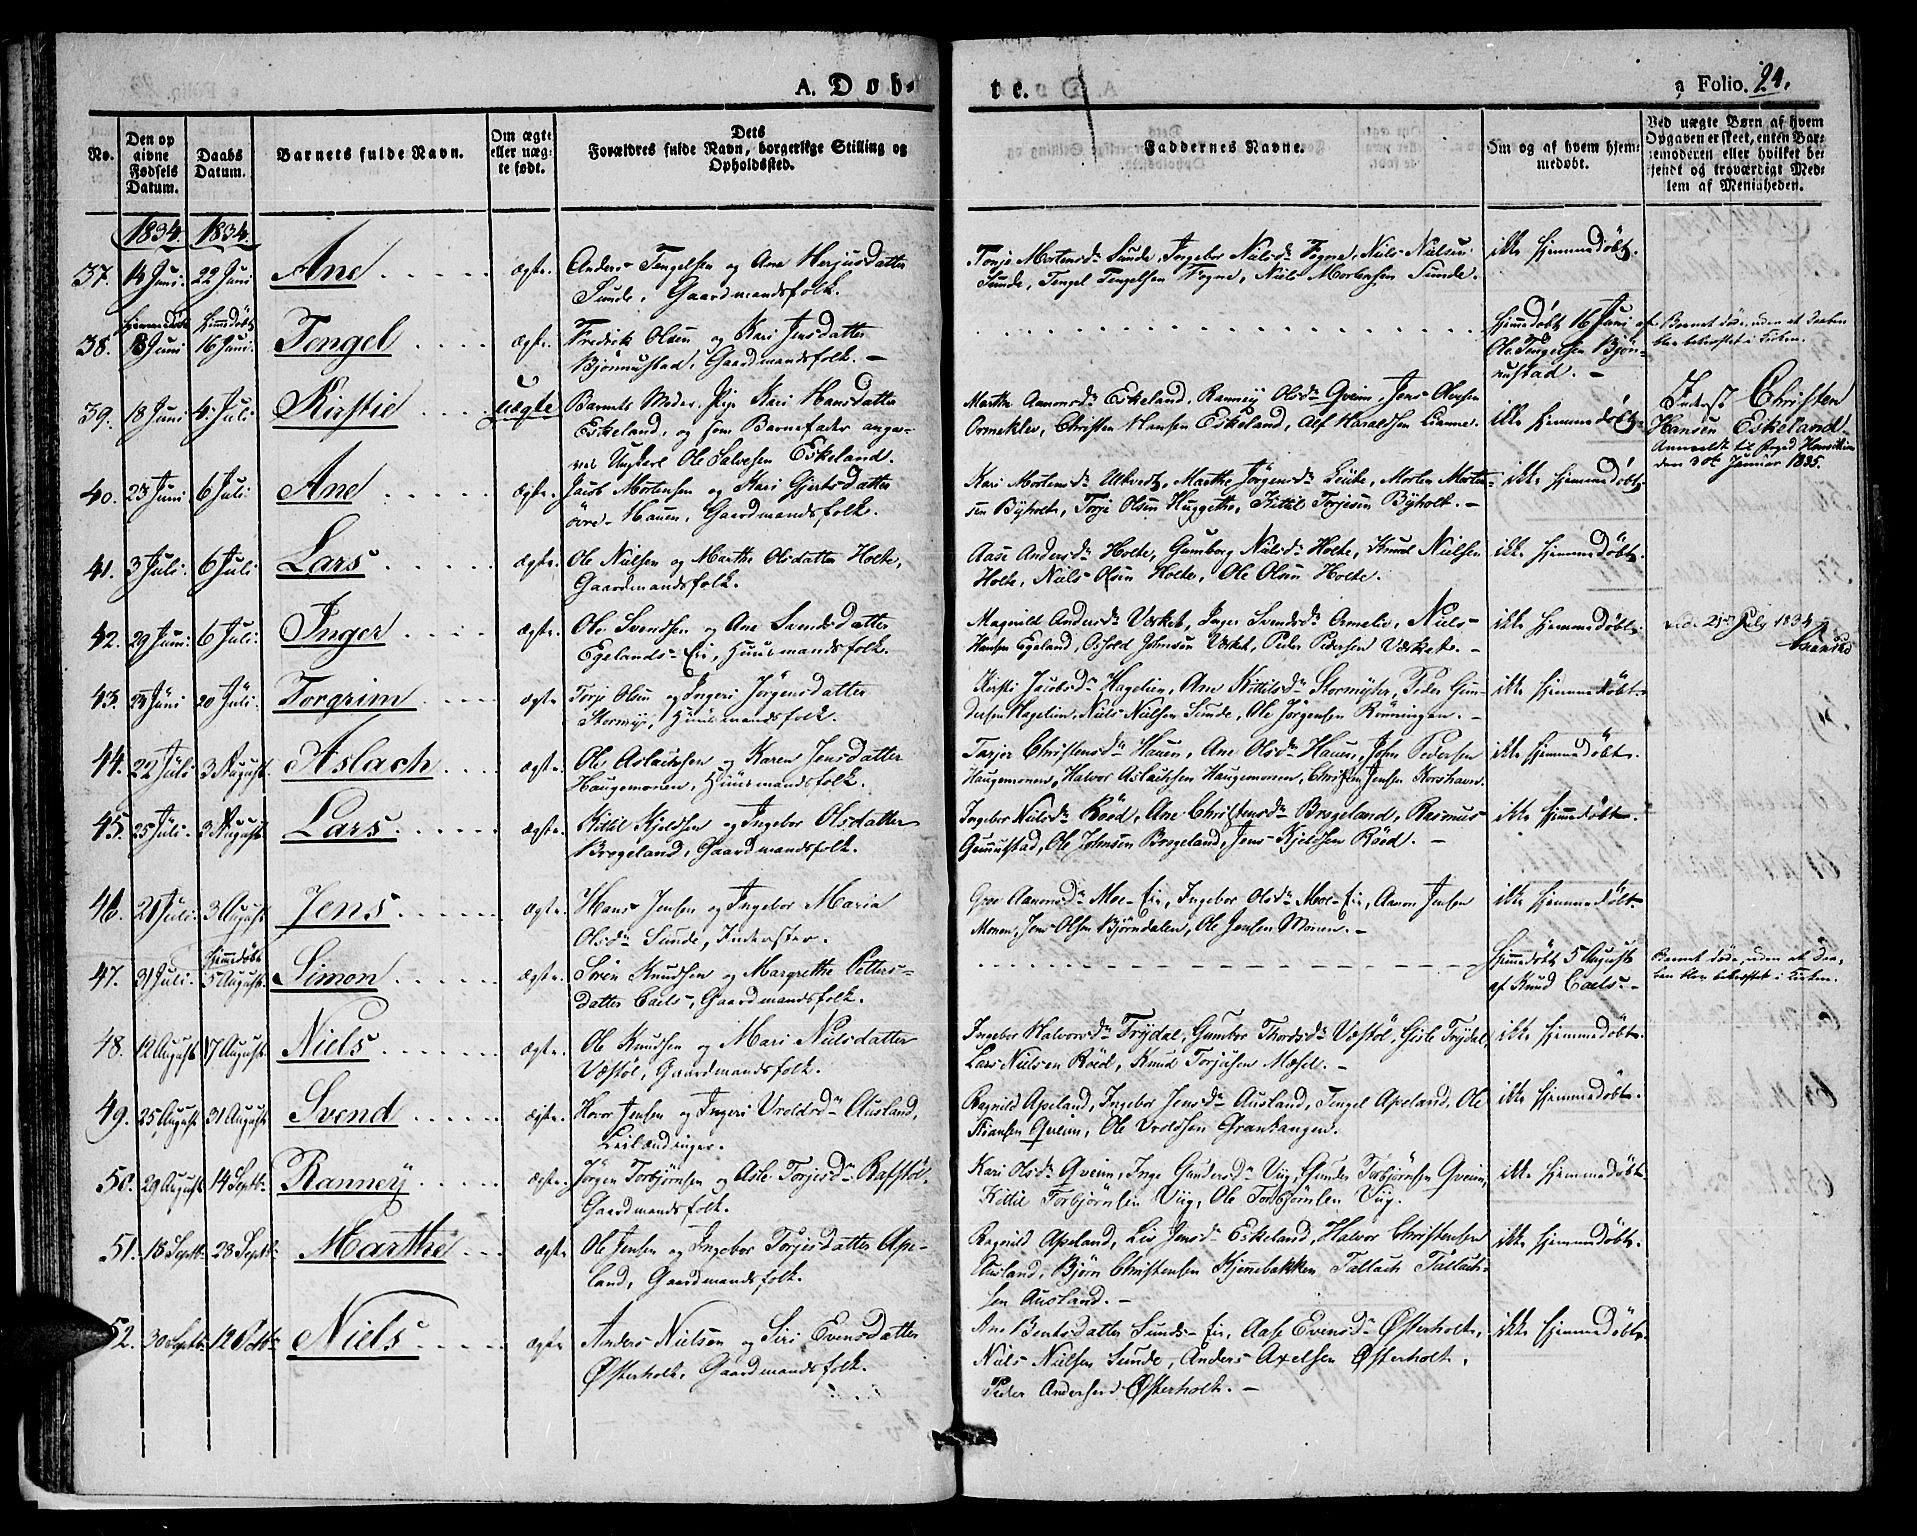 A. Døb-
te.
a Folio. 24.
No.
Den op
givne
Fødsels
Datum.
Daabs
Datum.
Barnets fulde Navn.
Om ægte
eller uæg-
te født.
Dets
Forældres fulde Navn, borgerlige Stilling og
Opholdssted.
Faddernes Navne.
Om og af hvem hjem-
medøbt.
Ved uægte Børn af hvem
Opgaven er skeet, enten Bar-
nemoderen eller hvilket be-
kjendt og troværdigt Med-
lem af Menigheden.
1834. 1834.
37. 14 Juni. 22 Juni Ane ægte. Anders Tengelsen og Ane Herjusdatter
Sunde, Gaardmandsfolk.
Tonje Mortensdr Sunde, Ingebor Nielsdr Fogne, Niels Nielsen
Sunde, Tengel Tengelsen Fogne, Niels Mortensen Sunde.
ikke hjemmedøbt.
38. Juni 16 Juni. Tengel ægte. Fredrik Olsen og Kari Jensdatter
Bjønnustad, Gaardmandsfolk. —
Hjemmedøbt 16 Juni af
Ole Tengelsen Bjøn-
nustad. —
Barnet døde, uden at Daaben
blev bekræftet i Kirken.
39. 18 Juni 4 Juli Kirstie uægte Barnets Moder Pige Kari Hansdatter
Eskeland, og som Barnefader ange-
ves Ungkarl Ole Salvesen Eskeland.
Marthe Aanonsdr Eskeland, Ranney Olsdr Qveim, Jens Olsen
Ormekler, Christen Hansen Eskeland, Alf Haraldsen Lianne.
ikke hjemmedøbt.
Inderst Christen
Hansen Eskeland.
den 30te Januar 1835.
40. 23 Juni 6 Juli Ane ægte. Jacob Mortensen og Kari Gjertsdatter
øvre Hauen, Gaardmandsfolk.
Kari Mortensdr Ulkvedt, Marthe Jørgensdr Leite, Morten Morten-
sen Byholt, Torje Olsen Huggethe, Kittil Torjesen Byholt. —
ikke hjemmedøbt.
41. 3 Juli 6 Juli Lars ægte. Ole Nielsen og Marthe Olsdatter Holte,
Gaardmandsfolk.
Aase Andersdr Holte, Gunborg Nielsdr Holte, Knud Nielsen
Holte, Niels Olsen Holte, Ole Olsen Holte.
ikke hjemmedøbt.
42. 29 Juni 6 Juli. Inger ægte. Ole Svendsen og Ane Svendsdatter
Egelands-Eie, Huusmandsfolk.
Magnild Andersdr Værket, Inger Svendsdr Ormelie, Niels
Hansen Egeland, Johnsen Værket, Peder Pedersen Værket. —
ikke hjemmedøbt.
1834
43. Juni 20 Juli. Torgrim ægte. Torje Olsen og Ingeri Jørgensdatter
Stormyr, Huusmandsfolk.
Kirsti Jacobsdr Hagelien, Ane Kittilsdr Stormyhr, Peder Gun-
dersen Hagelien, Niels Nielsen Sunde, Ole Jørgensen Rønningen. —
ikke hjemmedøbt.
44. 22 Juli 3 August. Aslach ægte. Ole Aslachsen og Karen Jensdatter
Haugemonen, Huusmandsfolk.
Tarjer Christensdr Hauen, Ane Olsdr Hauen, John Pedersen
Haugemonen, Halvor Aslachsen Haugemonen, Christen Jensen Korshavn.
ikke hjemmedøbt.
45. 25 Juli. 3 August Lars ægte. Kittil Kjeldsen og Ingebor Olsdatter
Brogeland, Gaardmandsfolk.
Ingebor Nielsdr Røed, Ane Christensdr Brogeland, Rasmus
Gunnustad, Ole Johnsen Brogeland, Jens Kjeldsen Røed. —
ikke hjemmedøbt.
46. 21 Juli. 3 August Jens ægte. Hans Jensen og Ingebor Maria
Olsdr Sunde, Inderster.
Groe Aanonsdr Moe-Eie, Ingebor Olsdr Moe-Eie, Aanon Jensen
Monen, Jens Olsen Bjørndalen, Ole Jensen Monen. —
ikke hjemmedøbt.
47. 31 Juli. Hjemmedøbt 5 August Simon ægte. Søren Knudsen og Margrethe Petters-
datter Caels, Gaardmandsfolk.
Hjemmedøbt 5 August
af Knud Caels. —
Barnet døde, uden at Daa-
ben blev bekræftet i Kirken.
48. 12 August 17 August. Niels ægte. Ole Knudsen og Mari Nielsdatter
Væstøl, Gaardmandsfolk.
Ingebor Halvorsdr Frydal, Gunbor Thordsdr Væstøl, Gisle Frydal,
Lars Nielsen Røed, Knud Torjusen Mæsel. —
ikke hjemmedøbt.
49. 25 August 31 August Svend ægte. Hover Jensen og Ingeri Uroldsdr Ausland,
Leilændinger.
Ragnild Apeland, Ingebor Jensdr Ausland, Tengel Apeland, Ole
Qveim, Ole Uroldsen Grankangen.
ikke hjemmedøbt.
50. 29 August 14 Septbr. Ranney ægte. Jørgen Torbjørnsen og Asle Torjesdr Rafstøl,
Gaardmandsfolk.
Kari Olsdr Qveim, Inge Gundersdr Viig, Gunder Torbjørnsen Qveim,
Kittil Torbjørnsen Viig, Ole Torbjørnsen Viig.
ikke hjemmedøbt.
51. 18 Septbr. 28 Septbr. Marthe ægte Ole Jensen og Ingebor Torjesdatter Ape-
land, Gaardmandsfolk.
Ragnild Apeland, Liv Jensdr Eskeland, Halvor Christensen
Ausland, Bjørn Christensen Kjennebakken, Tallach Tallach-
sen Ausland. —
ikke hjemmedøbt.
52. 30 Septbr. 12 Octbr Niels ægte. Anders Nielsen og Siri Evensdatter
Østerholt, Gaardmandsfolk.
Ane Berntsdatter Sunds-Eie, Aase Evensdr Østerholt,
Niels Nielsen Sunde, Anders Axelsen Østerholt,
Peder Andersen Østerholt. —
ikke hjemmedøbt.